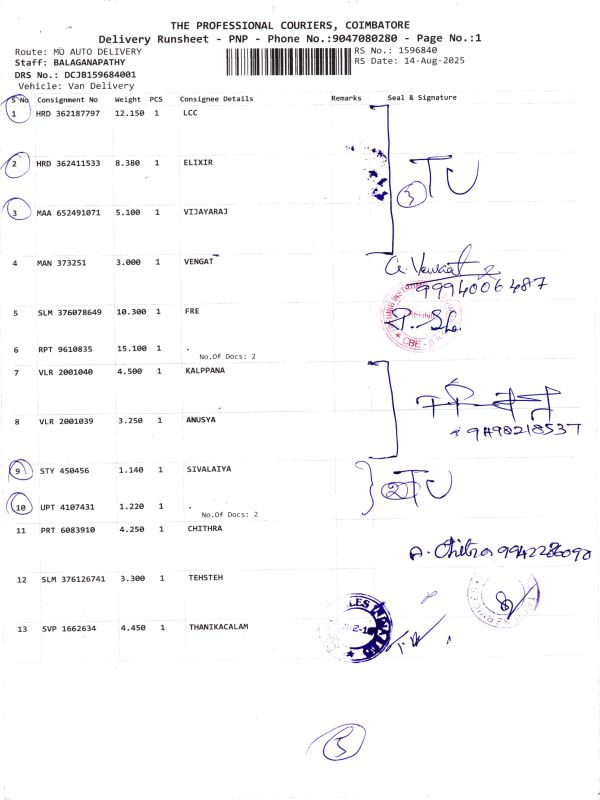 THE PROFESSIONAL COURIERS, COIMBATORE
Delivery Runsheet - PNP - Phone No.:9047080280 - Page No.:1
Route: MO AUTO DELIVERY
RS No.: 1596840
Staff: BALAGANAPATHY
RS Date: 14-Aug-2025
DRS No.: DCJB159684001
Vehicle: Van Delivery
S No Consignment No Weight PCS Consignee Details Remarks Seal & Signature
1 HRD 362187797 12.150 1 LCC
2 HRD 362411533 8.380 1 ELIXIR
3 TU
3 MAA 652491071 5.100 1 VIJAYARAJ
4 MAN 373251 3.000 1 VENGAT
9994006487
5 SLM 376078649 10.300 1 FRE
6 RPT 9610835 15.100 1 .
No.Of Docs: 2
7 VLR 2001040 4.500 1 KALPPANA
8 VLR 2001039 3.250 1 ANUSYA
9498218537
9 STY 450456 1.140 1 SIVALAIYA
2 TU
10 UPT 4107431 1.220 1 .
No.Of Docs: 2
11 PRT 6083910 4.250 1 CHITHRA
A. Chitra 9942286090
12 SLM 376126741 3.300 1 TEHSTEH
13 SVP 1662634 4.450 1 THANIKACALAM
5